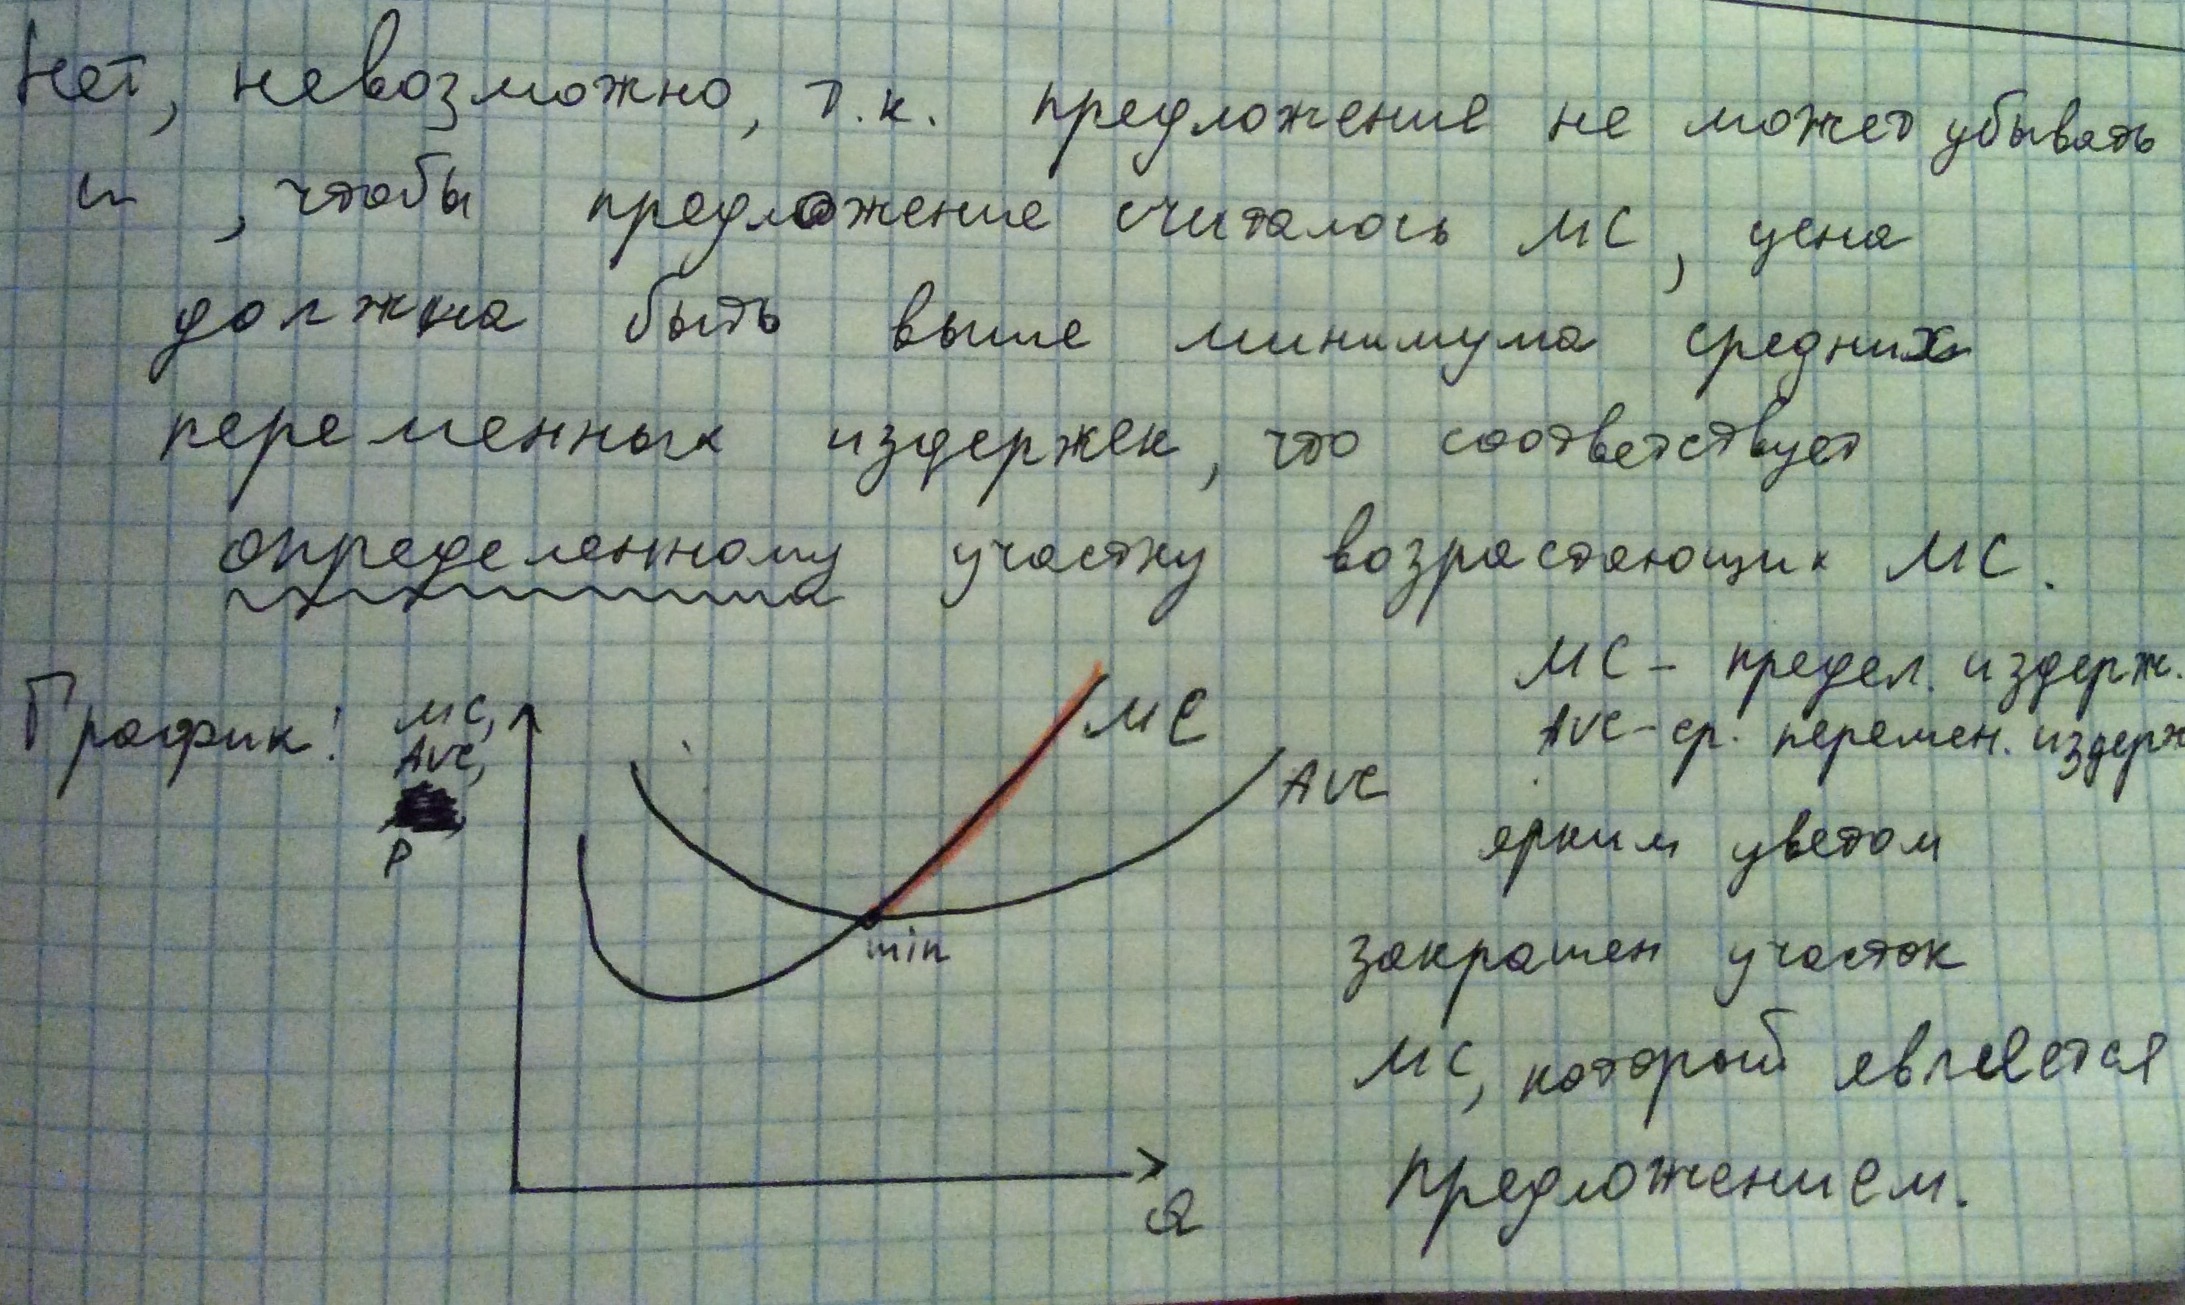 Нет, невозможно, т.к. предложение не может убывать
и , чтобы предложение считалось MC, цена
должна быть выше минимума средних
переменных издержек, что соответствует
определенному участку возрастающих MC.
MC - предел. издерж.
AVC - ср. перемен. издерж
График: MC,
AVC,
P
MC
AVC
min
Q
ярким цветом
закрашен участок
MC, который является
предложением.